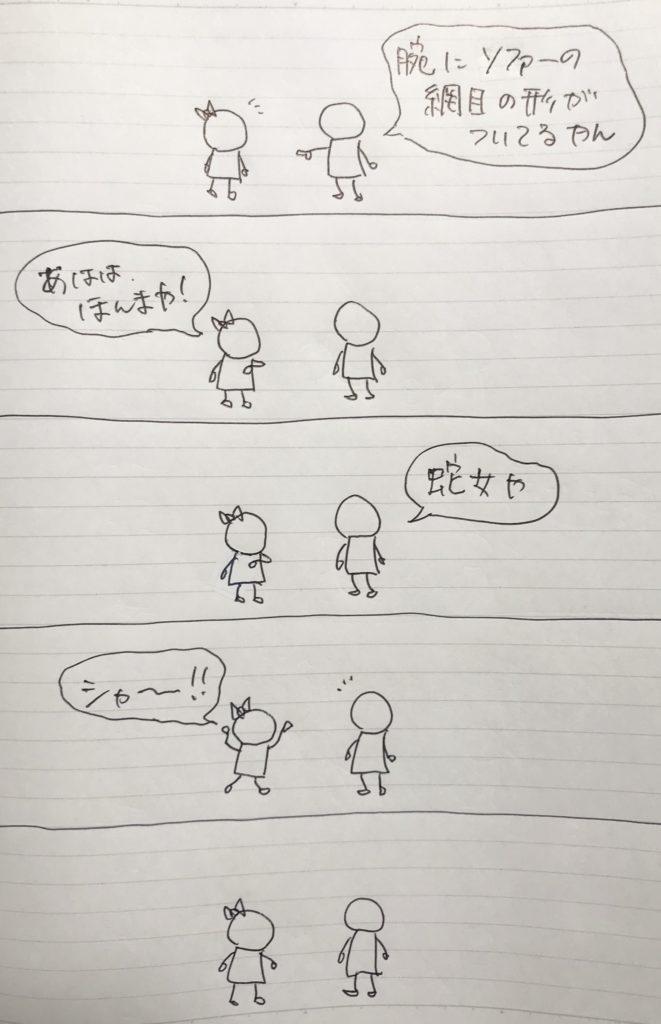 腕にソファーの
網目の形が
ついてるやん
あはは
ほんまや!
蛇女や
シャ〜!!